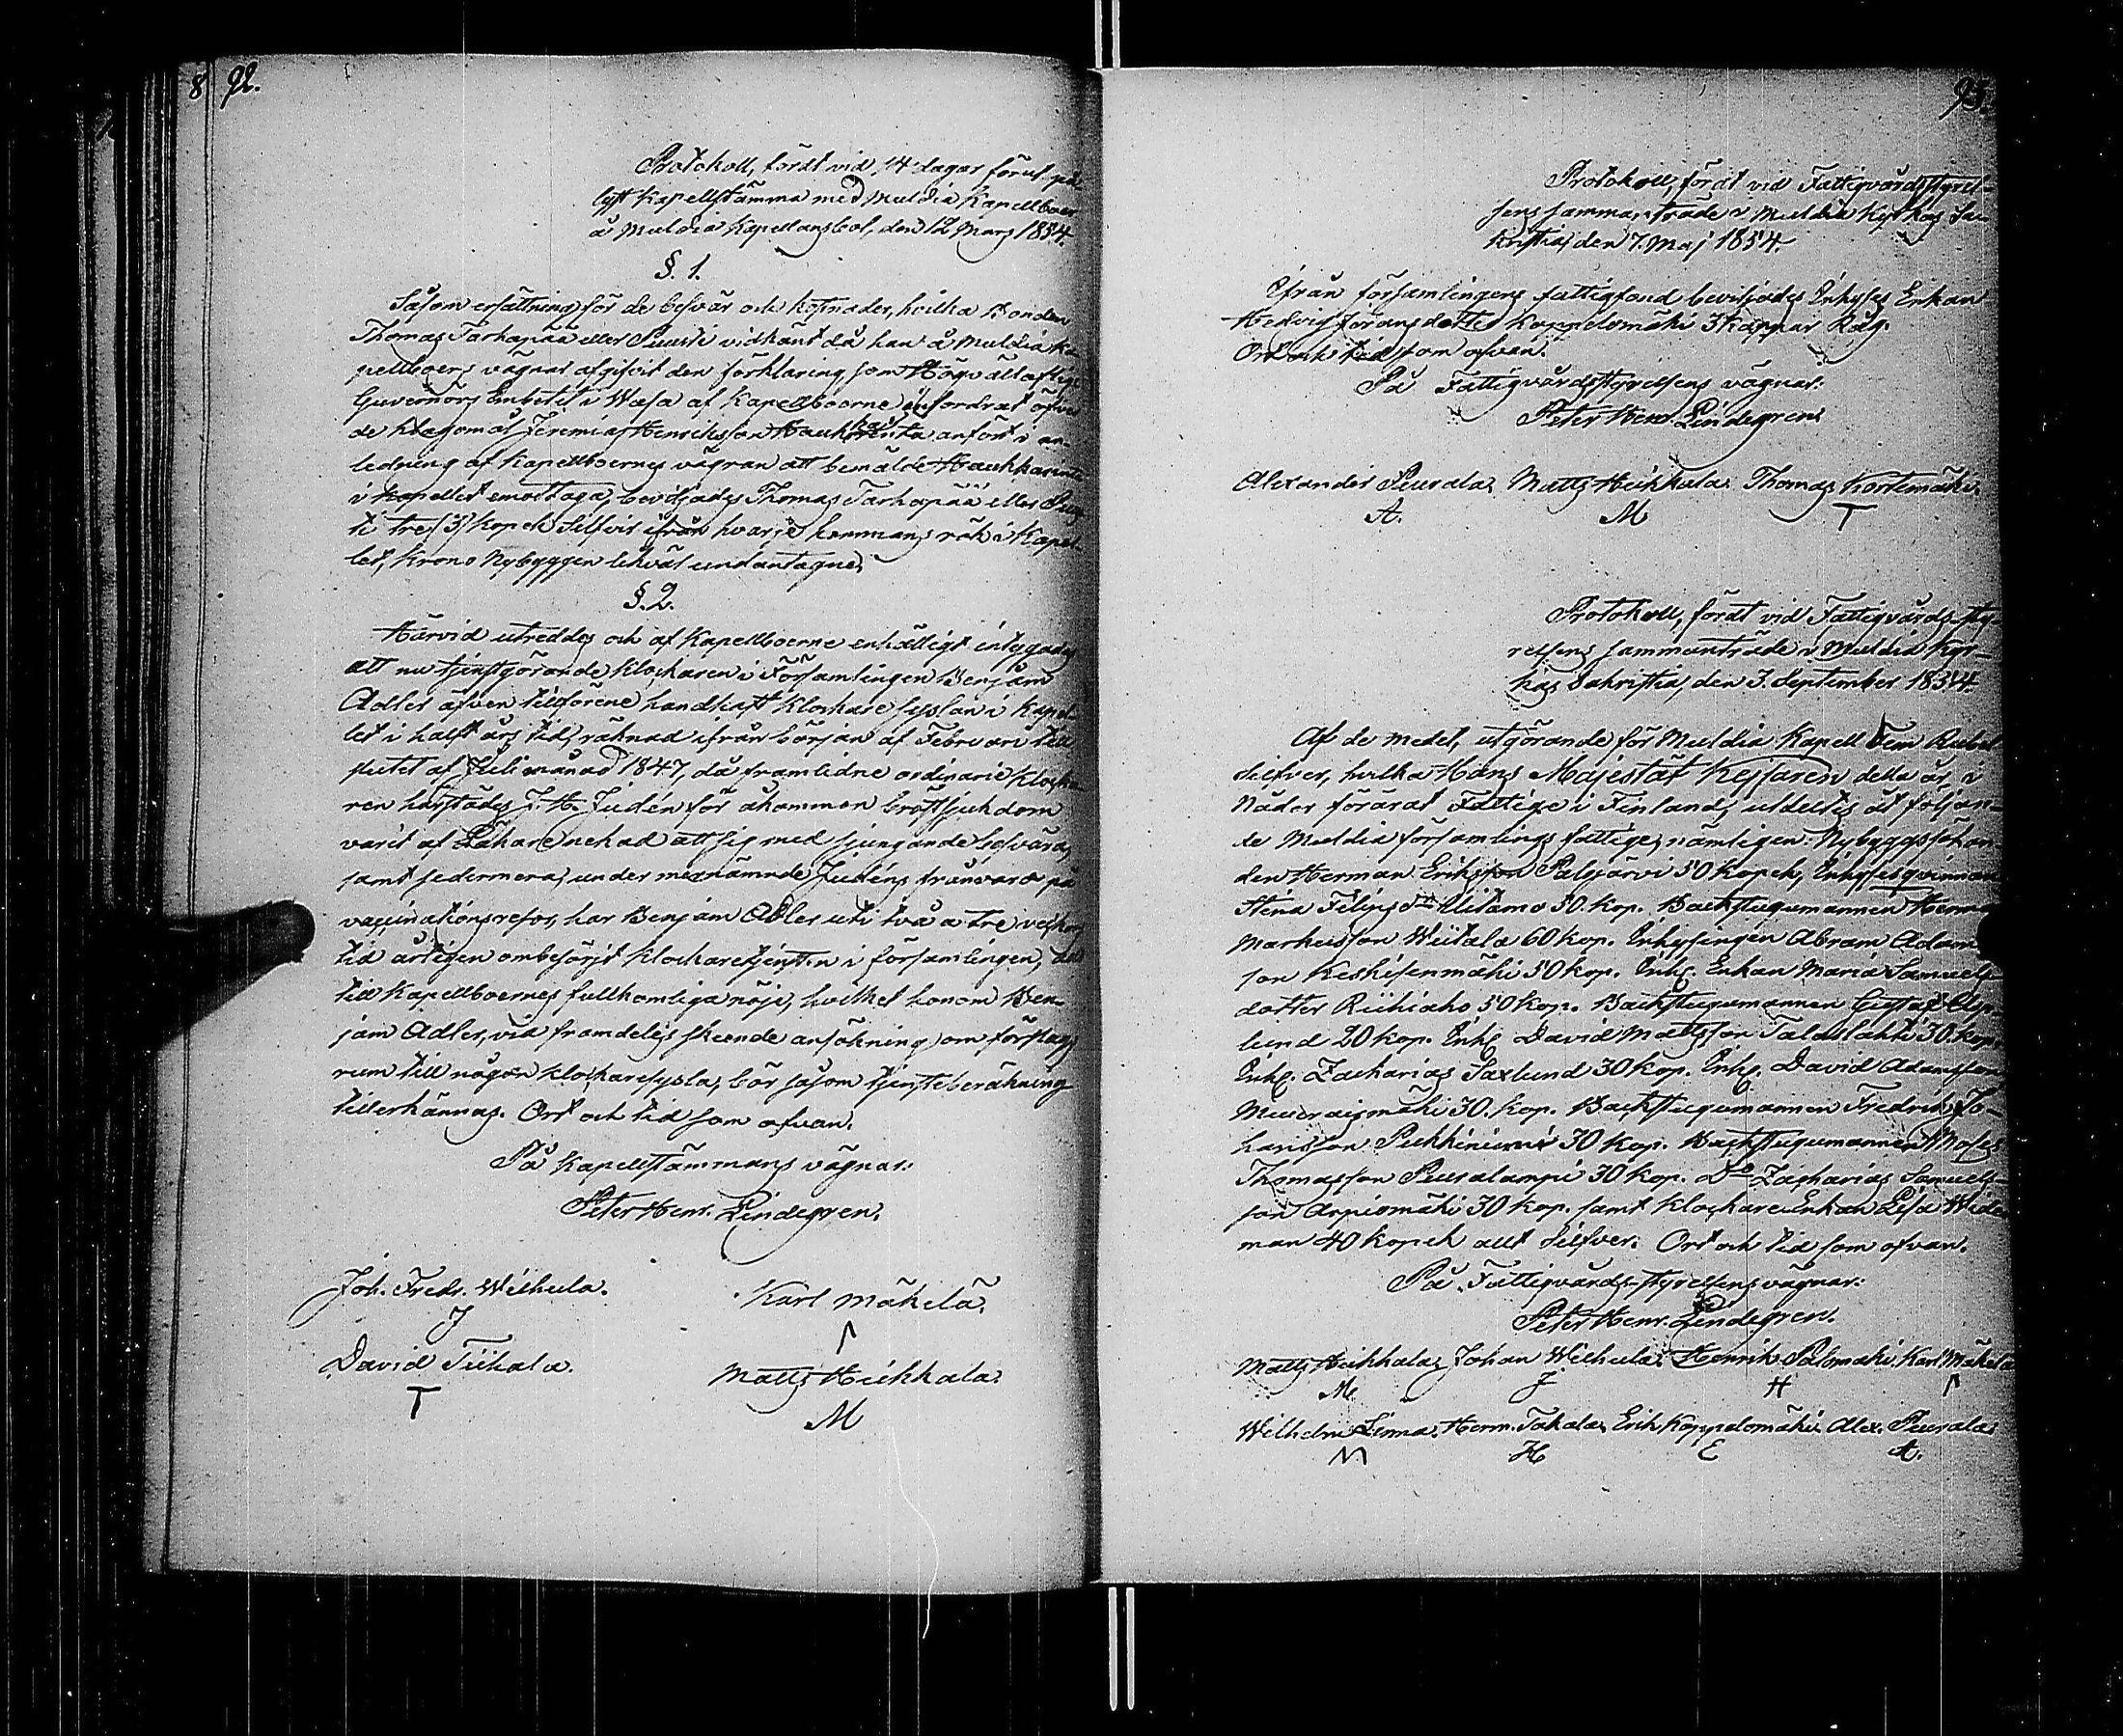 8 92.
Protokoll, fördt vid 14 dagar förut på-
lyst Kapellstämma med Muldia Kapellboer
å Muldia Kapellansbol, den 12 Mars 1854.
§. 1.
Såsom ersättning för de besvär och kostnader, hvilka Bonden
Thomas Tarhapää eller Puusti vidkänt då han å Muldia Ka-
pellboers vägnar afgifvit den förklaring som Högvälloflige
Guvernörs Embetet i Wasa af Kapellboerne infordrat öfver
de klagomål Jeremias Henriksson Haukkaranta anfört i an-
ledning af Kapellboernes vägran att bemälde Haukkaranta
i kapellet emottaga, beviljades Thomas Tarhapää eller Puus-
ti tre (3) kopek Silfver ifrån hvarje hemmans rök i Kapel-
let, Krono Nybyggen likväl undantagne.
§. 2.
Härvid utreddes och af Kapellboerne enhälligt intygades
att nu tjenstgörande Klockaren i Församlingen Benjam
Adler äfven tillförene handhaft klockare sysslan i Kapel-
let i halft års tid, räknad ifrån början af Februari till
slutet af Juli månad 1847, då framlidne ordinarie Klocka-
ren härstädes J. H. Judén för åkommen bröstsjukdom
varit af Läkare nekad att sig med sjungande besvära,
samt sedermera, under mernämnde Judéns frånvaro på
vaccinationsresor, har Benjam Adler uti två a tre veckors
tid årligen ombesörjt Klockaretjensten i församlingen, allt
till Kapellboernes fullkomliga nöje, hvilket honom Ben-
jam Adler, vid framdeles skeende ansökning om förslags
rum till någon klockaresyssla, bör såsom tjensteberäkning
tillerkännas. Ort och tid som ofvan.
På Kapellstämmans vägnar:
Peter Henr. Lindegren.
Joh. Fredr. Weihula. Karl Mäkelä.
J
David Tiikala. Matts Heikkala.
T M
93.
Protokoll, fördt vid Fattigvårdsstyrel-
sens sammanträde i Muldia Kyrkas Sa-
kristia, den 7. Maj 1854.
Ifrån församlingens fattigfond beviljades Inhyses Enkan
Hedvig Göransdotter Koppelomäki 3 Kappar Råg.
Ort och tid som ofvan.
På Fattigvårdsstyrelsens vägnar:
Peter Henr. Lindegren.
Alexander Peurala. Matts Heikkala. Thomas Kortemäki.
A. M T
Protokoll, fördt vid Fattigvårds-sty-
relsens sammanträde i Muldia Kyr-
kas Sakristia, den 3. September 1854.
Af de medel, utgörande för Muldia Kapell Fem Rubel
Silfver, hvilka Hans Majestät Kejsaren detta år, i
Nåder förärat Fattige i Finland, utdeltes åt följan-
de Muldia församlings fattige, nämligen: Nybyggssön-
den Herman Eriksson Palsjärvi 50 Kopek, Inhysesqvinnan
Stina Filipsdr Uitamo 50. kop. Backstugumannen Herman
Markusson Wiitala 60 kop. Inhysingen Abram Adams-
son Keskisenmäki 50 kop. Inh. Enkan Maria Samuels-
dotter Riihiaho 50 kop. Backstugumannen Gustaf Asp-
lund 20 kop. Inh. David Mattsson Talaslahti 30. kop.
Inh. Zacharias Saxlund 30 kop. Inh. David Adamsson
30. kop. Backstugumannen Fredrik Jo-
hansson 30 kop. Backstugumannen Moses
Thomasson Peuralampi 30 kop. Do Zacharias Samuels-
son Arpiomäki 30 kop. samt Klockare Enkan Lisa Wide-
man 40 kopek allt Silfver. Ort och tid som ofvan.
På Fattigvårds-styrelsens vägnar:
Peter Henr. Lindegren.
Matts Heikkala, Johan Weihula, Henrik Palomäki, Karl Mäkelä
M J H
Wilhelm Linna. Herm. Takala, Erik Koppelomäki. Alex. Peurala.
H E A.